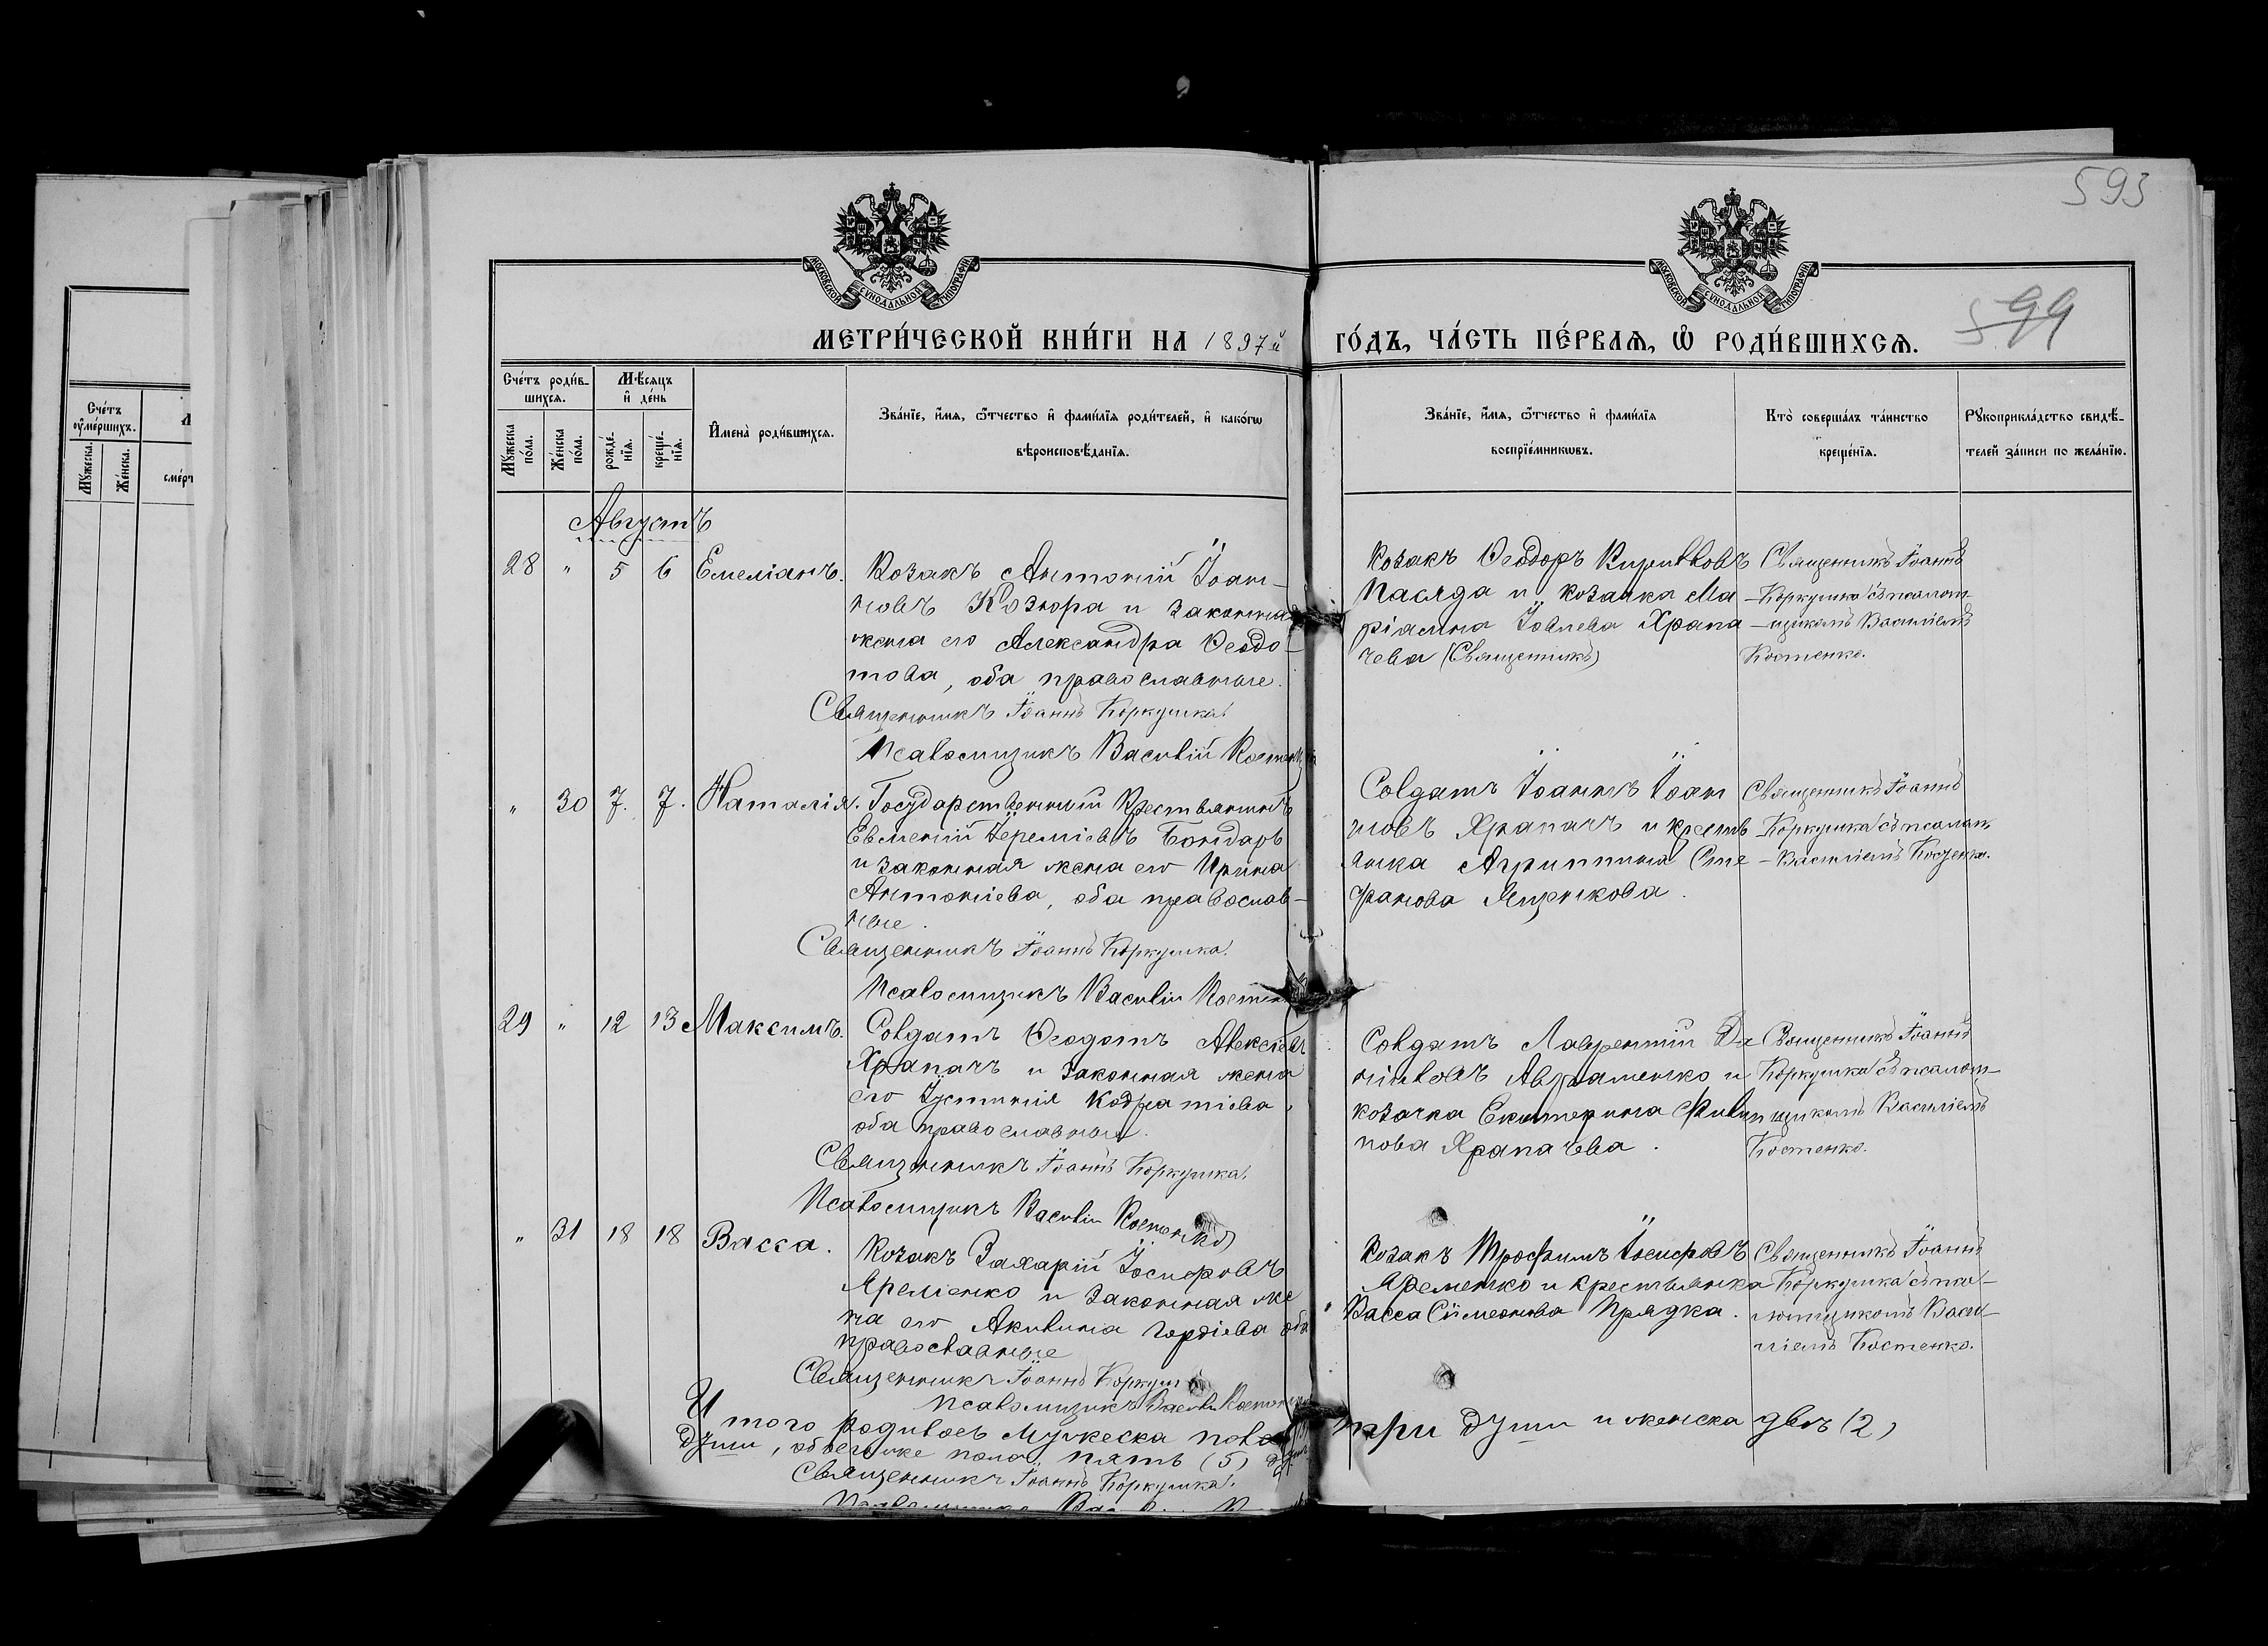 593
599
МОСКОВСКОЙ СѴНОДАЛЬНОЙ ТИПОГРАФІИ
МОСКОВСКОЙ СѴНОДАЛЬНОЙ ТИПОГРАФІИ
МЕТРИ́ЧЕСКОЙ КНИ́ГИ НА 1897й
ГО́ДЪ, ЧА́СТЬ ПЕ́РВАѦ, Ѽ РОДИ́ВШИХСѦ.
Сче́тъ роди́в-
шихсѧ.
Мꙋ́жеска по́ла.
Же́нска по́ла.
Мѣ́сѧцъ
и҆ де́нь
рожде́-
нїѧ.
креще́-
нїѧ.
И҆мена̀ роди́вшихсѧ.
Зва́нїе, и҆́мѧ, ѻ҆́тчество и҆ фами́лїѧ роди́телей, и҆ како́гѡ
вѣроисповѣ́данїѧ.
Зва́нїе, и҆́мѧ, ѻ҆́тчество и҆ фами́лїѧ
воспрїе́мникѡвъ.
Кто̀ соверша́лъ та́инство
креще́нїѧ.
Рꙋкоприкла́дство свидѣ́-
телей за́писи по жела́нїю.
Сче́тъ
ѹ҆ме́ршихъ.
Мꙋ́жеска.
Же́нска.
сме́рт
Августъ
28 " 5 6 Емеліанъ.
Козакъ Антоній Іоан-
новъ Козюра и законная
жена его Александра Ѳеодо-
това, оба православные.
Священникъ Іоаннъ Коркушка.
Псаломщикъ Василій Костенко
Козакъ Ѳеодоръ Кирилловъ
Пасяда и козачка Ма
ріанна Іовлева Храпа
чева (Священникъ)
Священникъ Іоаннъ
Коркушка съ псалом-
щикомъ Василіемъ
Костенко.
" 30 7. 7. Наталія.
Государственный крестьянинъ
Евменій Іереміевъ Бондарь
и законная жена его Ирина
Антоніева, оба православ-
ные.
Священникъ Іоаннъ Коркушка.
Псаломщикъ Василій Костенко
Солдатъ Іоаннъ Іоан
новъ Храпачъ и кресть
янка Агриппина Сте
фанова Ященкова.
Священникъ Іоаннъ
Коркушка съ псалом.
Василіемъ Костенко.
29 " 12 13 Максимъ.
Солдатъ Ѳеодотъ Алексіевъ
Храпачъ и законная жена
его Іустинія Кодратіева,
оба православные.
Священникъ Іоаннъ Коркушка.
Псаломщикъ Василій Костенко
Солдатъ Лаврентій Да
ніиловъ Авраменко и
козачка Екатерина Филип
пова Храпачева.
Священникъ Іоаннъ
Коркушка съ псалом-
щикомъ Василіемъ
Костенко.
" 31 18 18 Васса.
Козакъ Захарій Іосифовъ
Яременко и законная же
на его Акилина Гордіева оба
православные
Священникъ Іоаннъ Коркушка
Псаломщикъ Василій Костенко
Козакъ Трофимъ Іосифовъ
Яременко и крестьянка
Васса Сімеонова Прядка.
Священникъ Іоаннъ
Коркушка съ пса-
ломщикомъ Васи-
ліемъ Костенко.
Итого родилось мужеска пола
три души и женска двѣ (2)
души, обоего же пола пять (5) душъ
Священникъ Іоаннъ Коркушка.